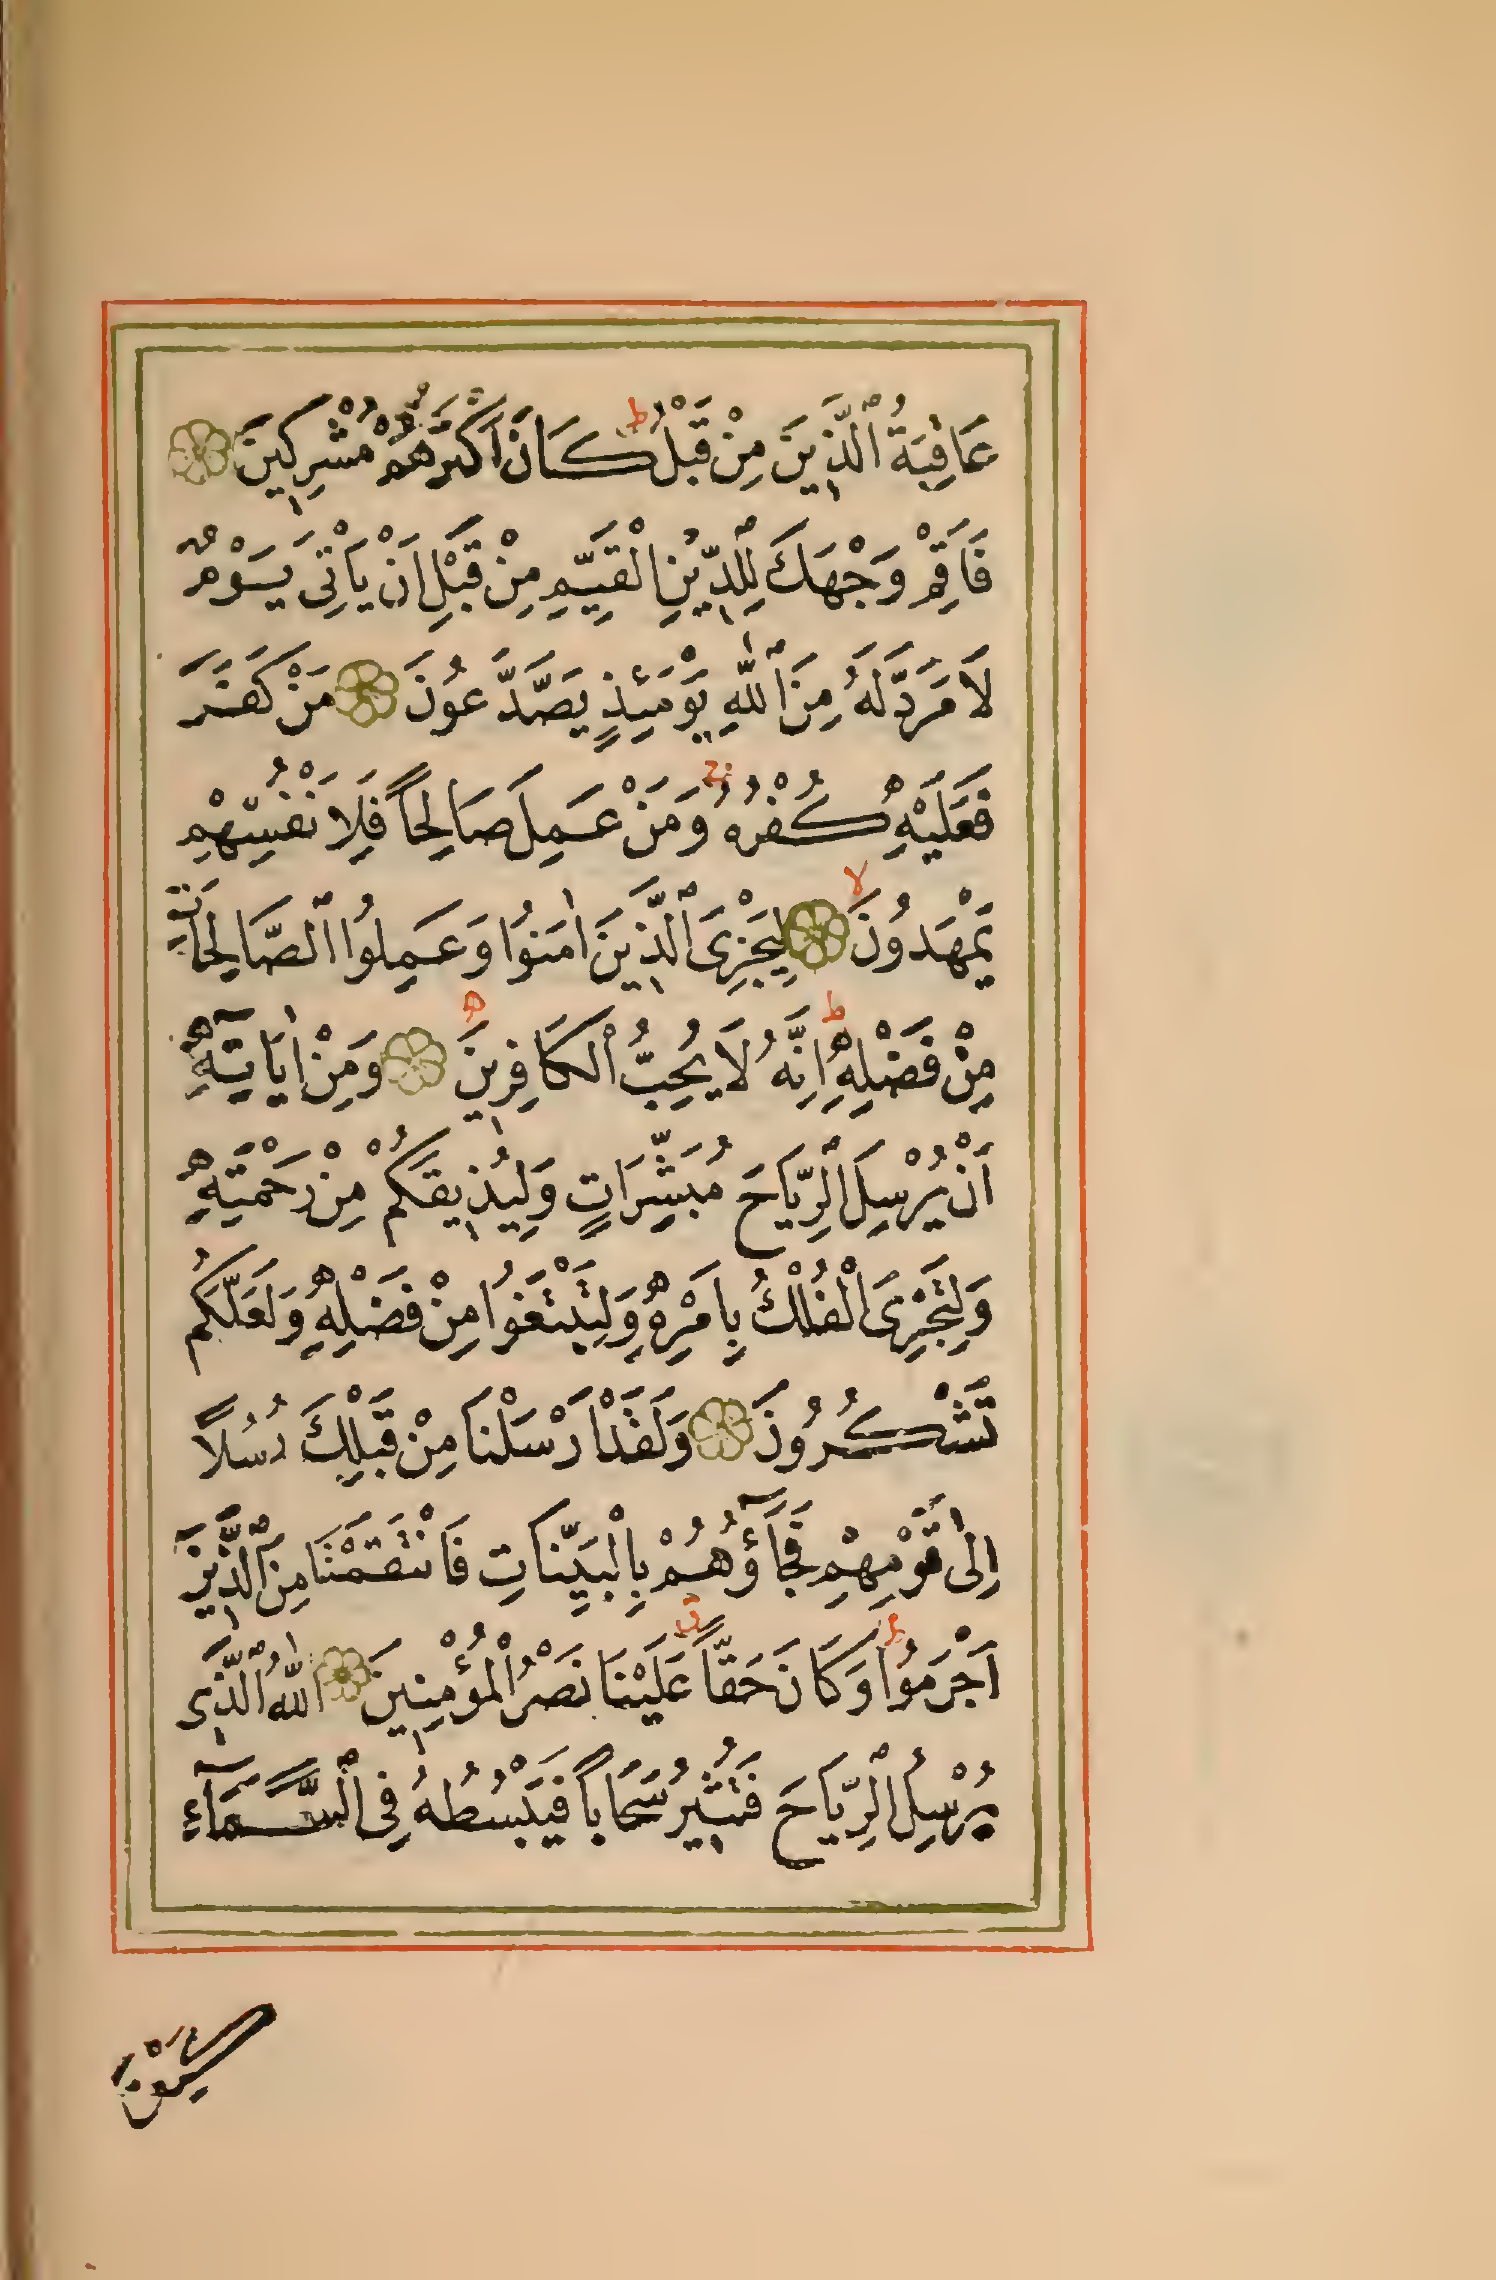 عَاقِبَةُ ٱلَّذِينَ مِنْ قَبْلُ ط كَانَ اَكْثَرُهُمْ مُشْرِكِينَ
فَاَقِمْ وَجْهَكَ لِلدِّينِ الْقَيِّمِ مِنْ قَبْلِ اَنْ يَاْتِىَ يَوْمٌ
لَا مَرَدَّ لَهُ مِنَ ٱللّٰهِ يَوْمَئِذٍ يَصَّدَّعُونَ مَنْ كَفَرَ
فَعَلَيْهِ كُفْرُهُ ج وَمَنْ عَمِلَ صَالِحًا فَلِاَنْفُسِهِمْ
يَمْهَدُونَ لا لِيَجْزِىَ ٱلَّذِينَ اٰمَنُوا وَعَمِلُوا ٱلصَّالِحَاتِ
مِنْ فَضْلِهِ ط اِنَّهُ لَا يُحِبُّ ٱلْكَافِرِينَ ه وَمِنْ اٰيَاتِهِ
اَنْ يُرْسِلَ ٱلرِّيَاحَ مُبَشِّرَاتٍ وَلِيُذِيقَكُمْ مِنْ رَحْمَتِهِ
وَلِتَجْرِىَ ٱلْفُلْكُ بِاَمْرِهِ وَلِتَبْتَغُوا مِنْ فَضْلِهِ وَلَعَلَّكُمْ
تَشْكُرُونَ وَلَقَدْ اَرْسَلْنَا مِنْ قَبْلِكَ رُسُلًا
اِلٰى قَوْمِهِمْ فَجَآؤُهُمْ بِالْبَيِّنَاتِ فَانْتَقَمْنَا مِنَ ٱلَّذِينَ
اَجْرَمُوا وَكَانَ حَقًّا عَلَيْنَا نَصْرُ الْمُؤْمِنِينَ اَللّٰهُ ٱلَّذِى
يُرْسِلُ ٱلرِّيَاحَ فَتُثِيرُ سَحَابًا فَيَبْسُطُهُ فِى ٱلسَّمَآءِ
كَيْفَ